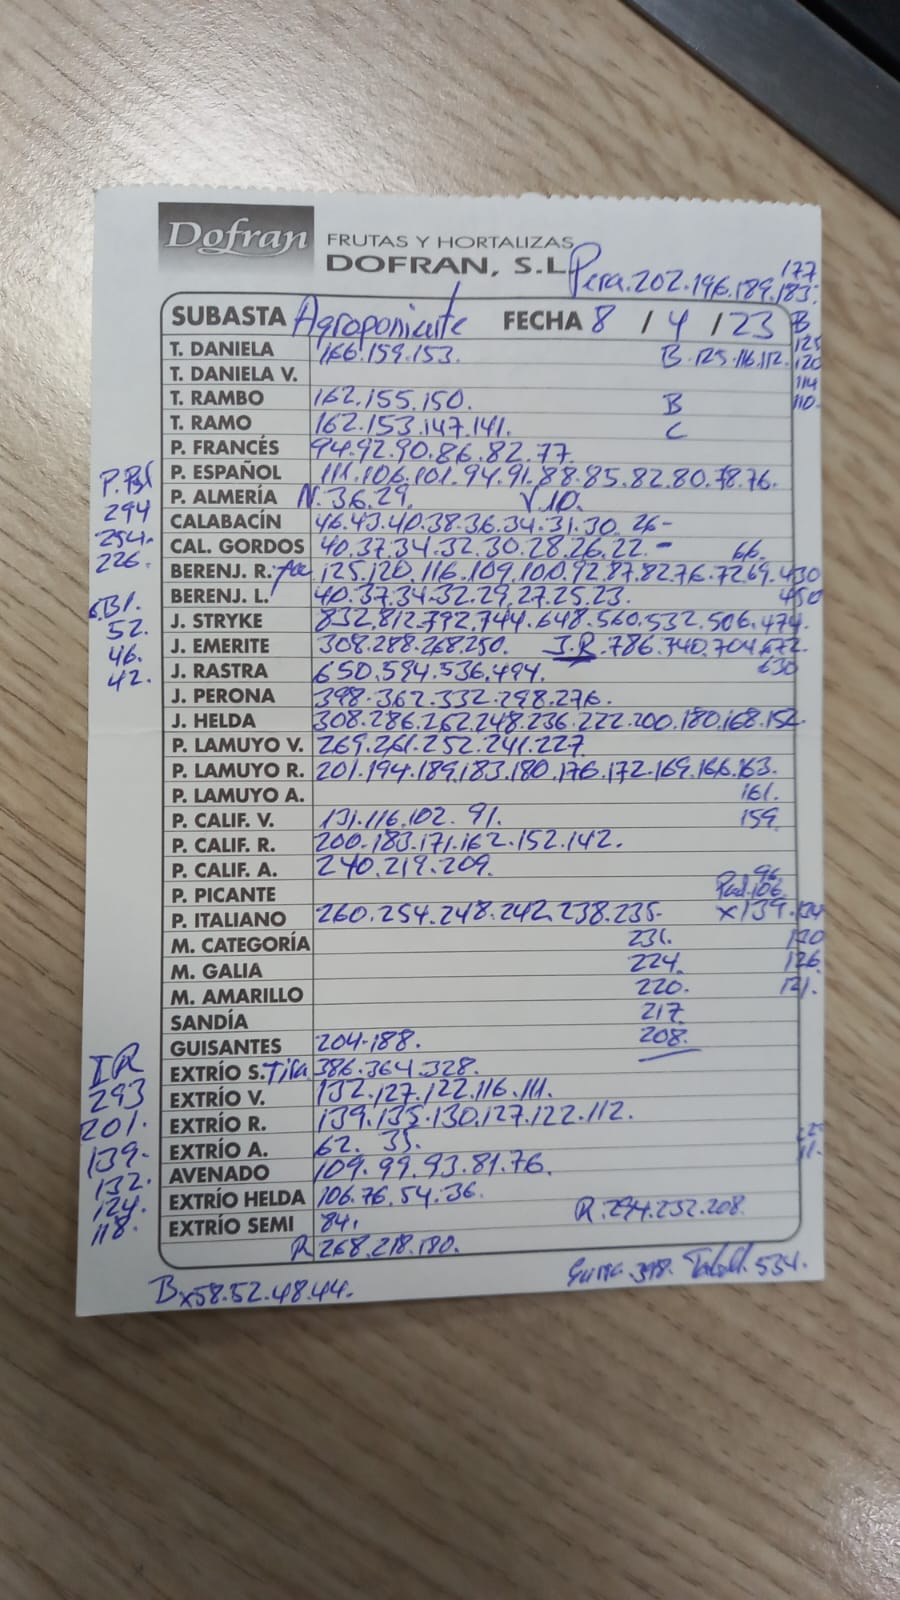 Dofran FRUTAS Y HORTALIZAS
DOFRAN, S.L.
Pera.202.196.189.183. 177
SUBASTA Agroponiente FECHA 8 / 4 / 23 B
T. DANIELA 166.159.153. B.125.116.112. 125
120
T. DANIELA V. 114
T. RAMBO 162.155.150. B 110.
T. RAMO 162.153.147.141. C
P. FRANCÉS 94.92.90.86.82.77.
P. ESPAÑOL 111.106.101.94.91.88.85.82.80.78.76.
P. ALMERÍA N.36.29. V.10.
294 CALABACÍN 46.43.40.38.36.34.31.30. 26-
254. CAL. GORDOS 40.37.34.32.30.28.26.22.- 66.
226. BERENJ. R. 125.120.116.109.100.92.87.82.76.72.69. 430
BERENJ. L. 40.37.34.32.29.27.25.23. 450
52. J. STRYKE 832.812.792.744.648.560.532.506.474.
46. J. EMERITE 308.288.268.250. J.R.786.740.704.672
42. J. RASTRA 650.594.536.494. 630
J. PERONA 398.362.332.298.276.
J. HELDA 308.286.262.248.236.222.200.180.168.152.
P. LAMUYO V. 269.261.252.241.227
P. LAMUYO R. 201.194.189.183.180.176.172.169.166.163.
P. LAMUYO A. 161.
P. CALIF. V. 131.116.102.91. 159
P. CALIF. R. 200.183.171.162.152.142.
P. CALIF. A. 240.219.209.
96
P. PICANTE 106.
P. ITALIANO 260.254.248.242.238.235. x139.134
M. CATEGORÍA 231. 130
M. GALIA 224. 126
M. AMARILLO 220. 121.
SANDÍA 217.
GUISANTES 204-188. 208.
IR
EXTRÍO S. Tira 386.364.328.
293 EXTRÍO V. 132.127.122.116.111.
201. EXTRÍO R. 139.135.130.127.122.112.
139. EXTRÍO A. 62. 35.
132. AVENADO 109.99.93.81.76.
124. EXTRÍO HELDA 106.76.54.36.
118. EXTRÍO SEMI 84. R.294.252.208.
R 268.218.180.
Bx58.52.48.44. 398. 534.